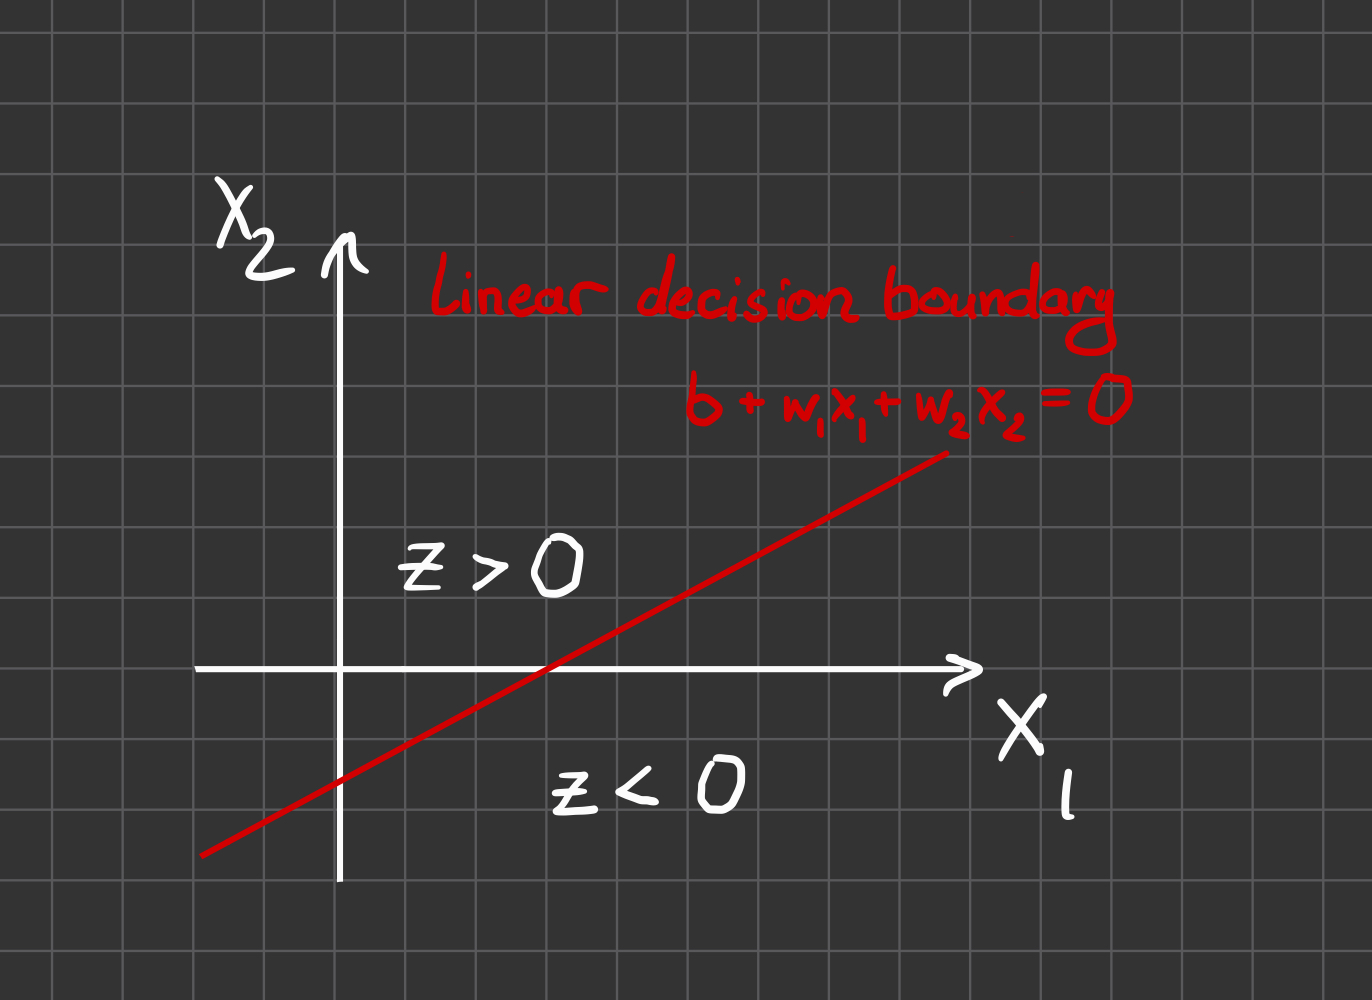 X₂
Linear decision boundary
b + w₁x₁ + w₂x₂ = 0
z > 0
X₁
z < 0